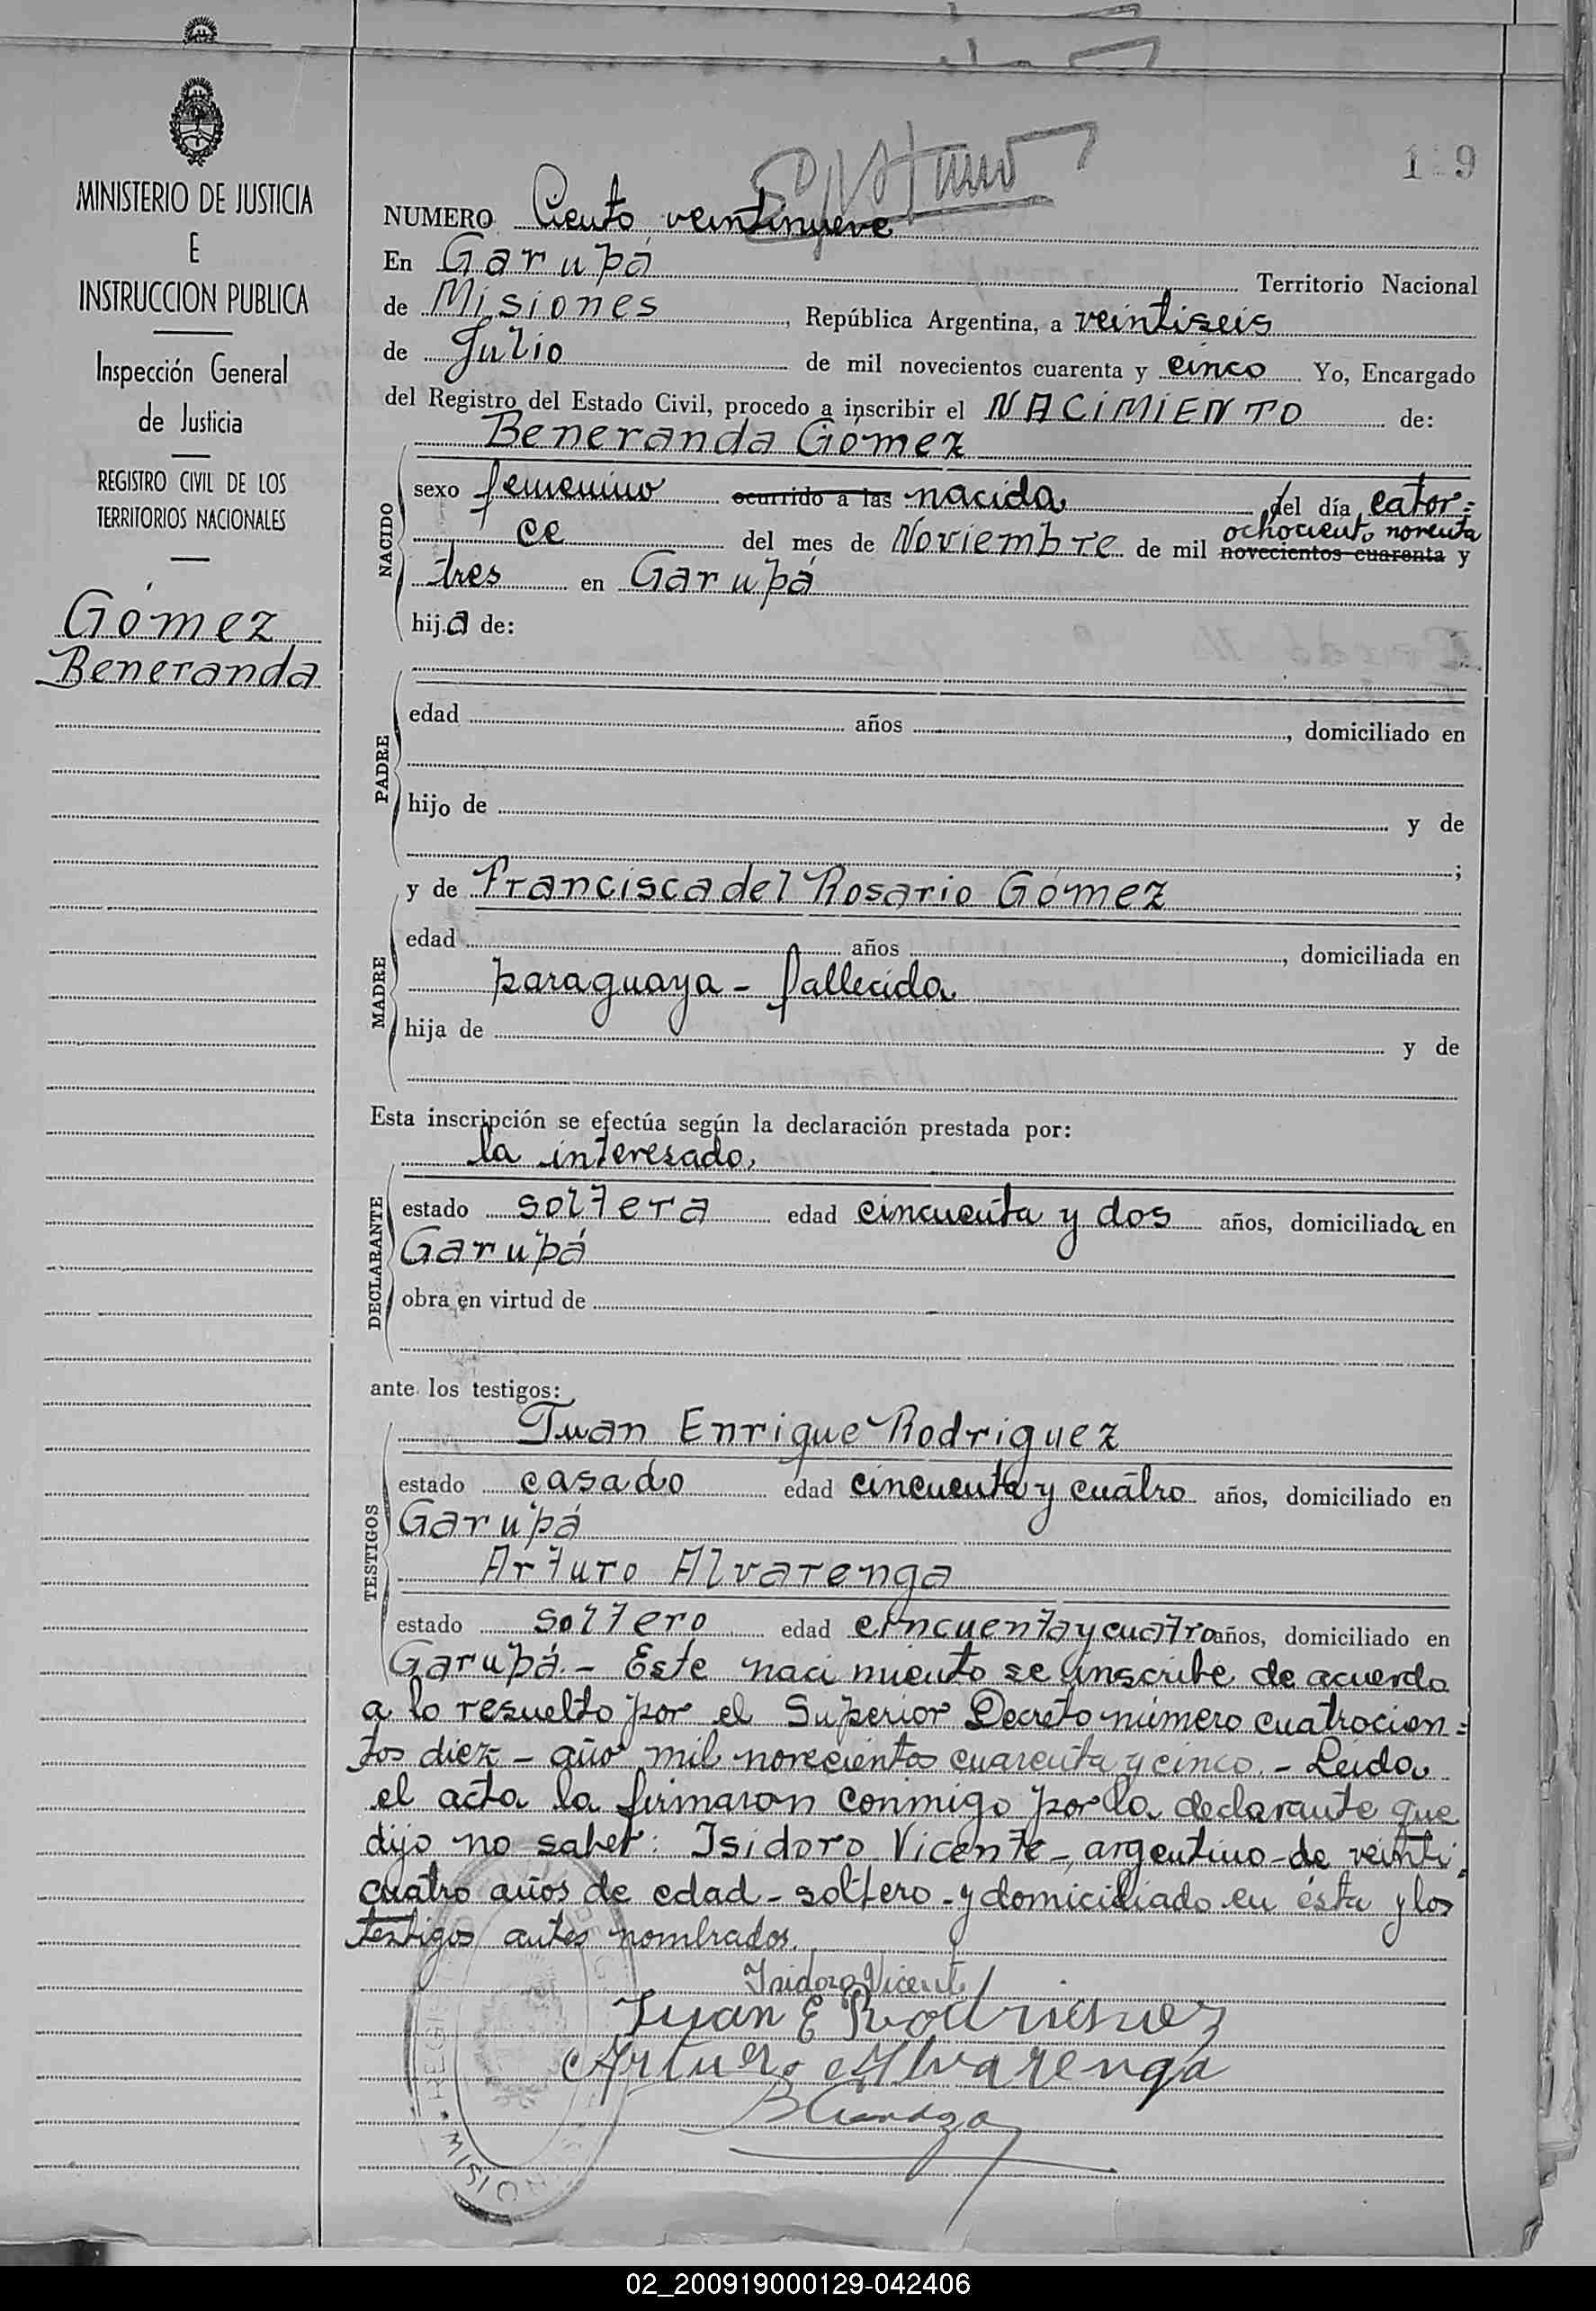 MINISTERIO DE JUSTICIA
E
INSTRUCCION PUBLICA
Inspección General
de Justicia
REGISTRO CIVIL DE LOS
TERRITORIOS NACIONALES
Gómez
Beneranda
1 9
NUMERO Ciento veintinueve
En Garupá Territorio Nacional
de Misiones, República Argentina, a veintiseis
de Julio de mil novecientos cuarenta y cinco Yo, Encargado
del Registro del Estado Civil, procedo a inscribir el NACIMIENTO de:
Beneranda Gómez
NACIDO
sexo femenino ocurrido a las nacida del día cator=
ochociento noventa
ce del mes de Noviembre de mil novecientos cuarenta y
tres en Garupá
hija de:
PADRE
edad años , domiciliado en
hijo de y de
;
y de Francisca del Rosario Gómez
MADRE
edad años , domiciliada en
paraguaya - fallecida
hija de y de
Esta inscripción se efectúa según la declaración prestada por:
la interesado,
DECLARANTE
estado soltera edad cincuenta y dos años, domiciliada en
Garupá
obra en virtud de
ante los testigos:
Juan Enrique Rodriguez
TESTIGOS
estado casado edad cincuenta y cuatro años, domiciliado en
Garupá
Arturo Alvarenga
estado soltero edad cincuenta y cuatro años, domiciliado en
Garupá.- Este nacimiento se inscribe de acuerdo
a lo resuelto por el Superior Decreto número cuatrocien=
tos diez - año mil novecientos cuarenta y cinco.- Leida
el acta la firmaron conmigo por la declarante que
dijo no saber: Isidoro Vicente - argentino - de veinti
cuatro años de edad - soltero - y domiciliado en ésta y los
testigos antes nombrados.
Isidoro Vicente
Juan E Rodriguez
Arturo Alvarenga
MISION
02_200919000129-042406